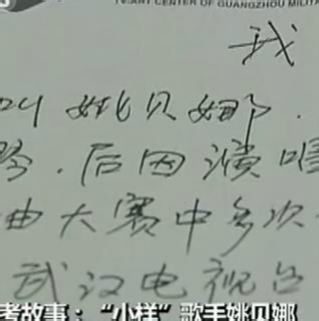 TV.ART CENTER OF GUANGZHOU MILITA
我
叫姚贝娜.
后因演唱
曲大赛中多次
武汉电视台
考故事：“小样”歌手姚贝娜